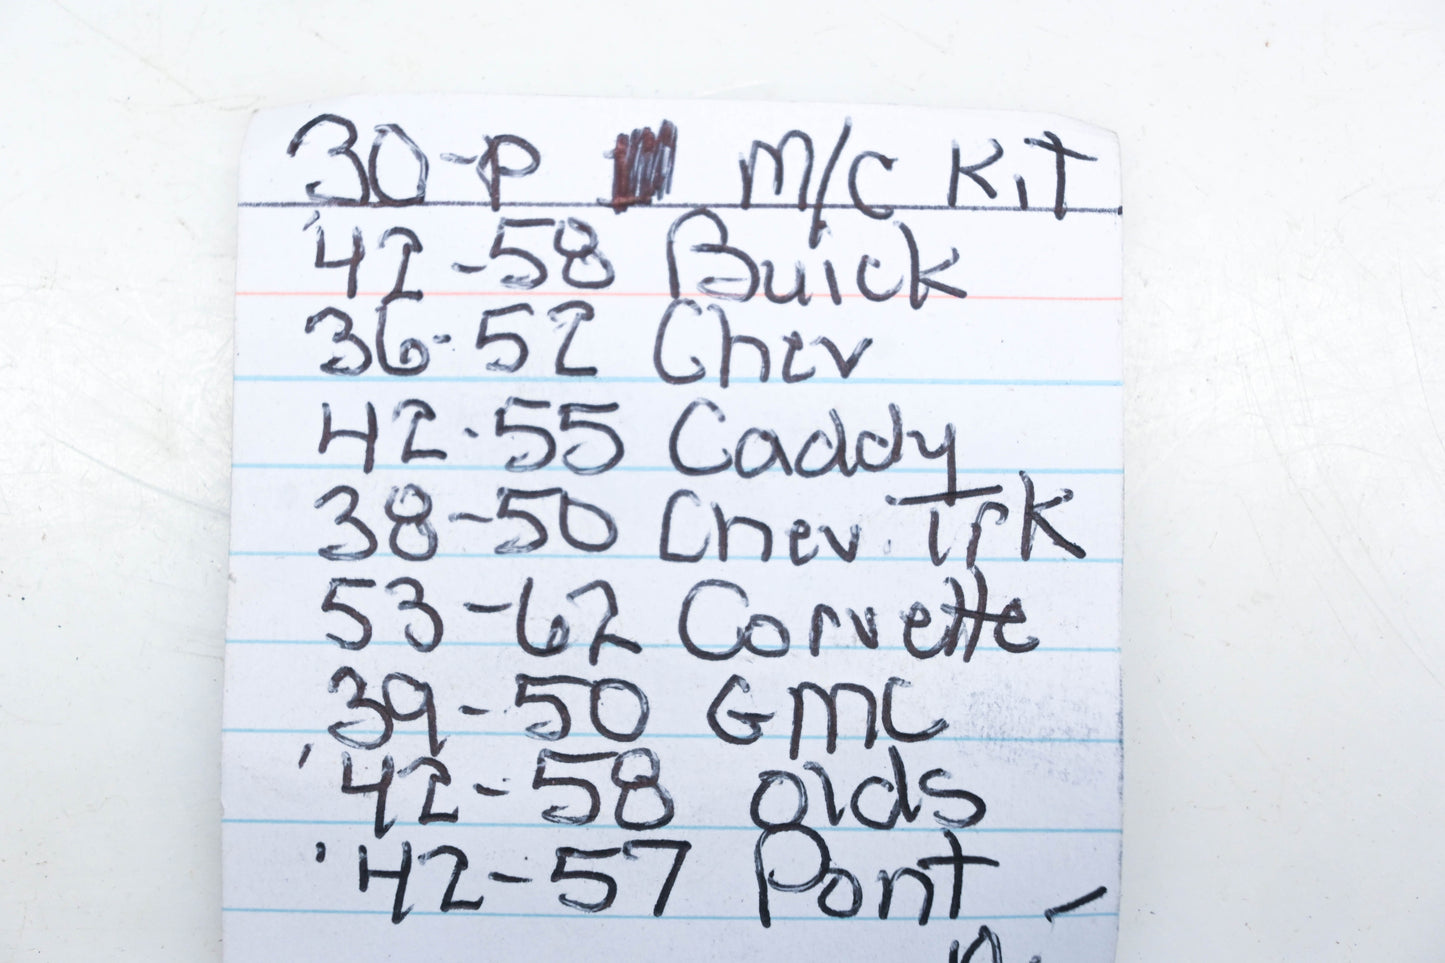 30-P M/C KIT
'42-58 Buick
36-52 Chev
42-55 Caddy
38-50 Chev. Trk
53-62 Corvette
39-50 GMC
'42-58 olds
'42-57 Pont